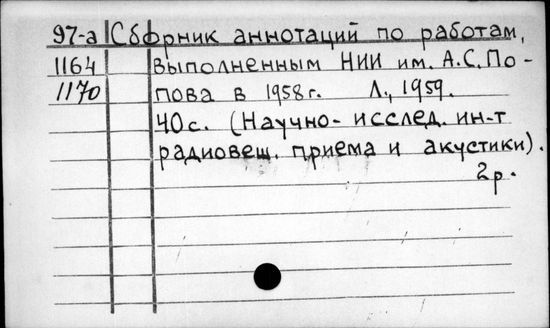 97-а Сборник аннотаций по работам,
1164 выполненным НИИ им. А.С. По-
1170 пова в 1958 г. Л., 1959.
40 с. (Научно-исслед. ин-т
радиовещ. приема и акустики).
2 р.